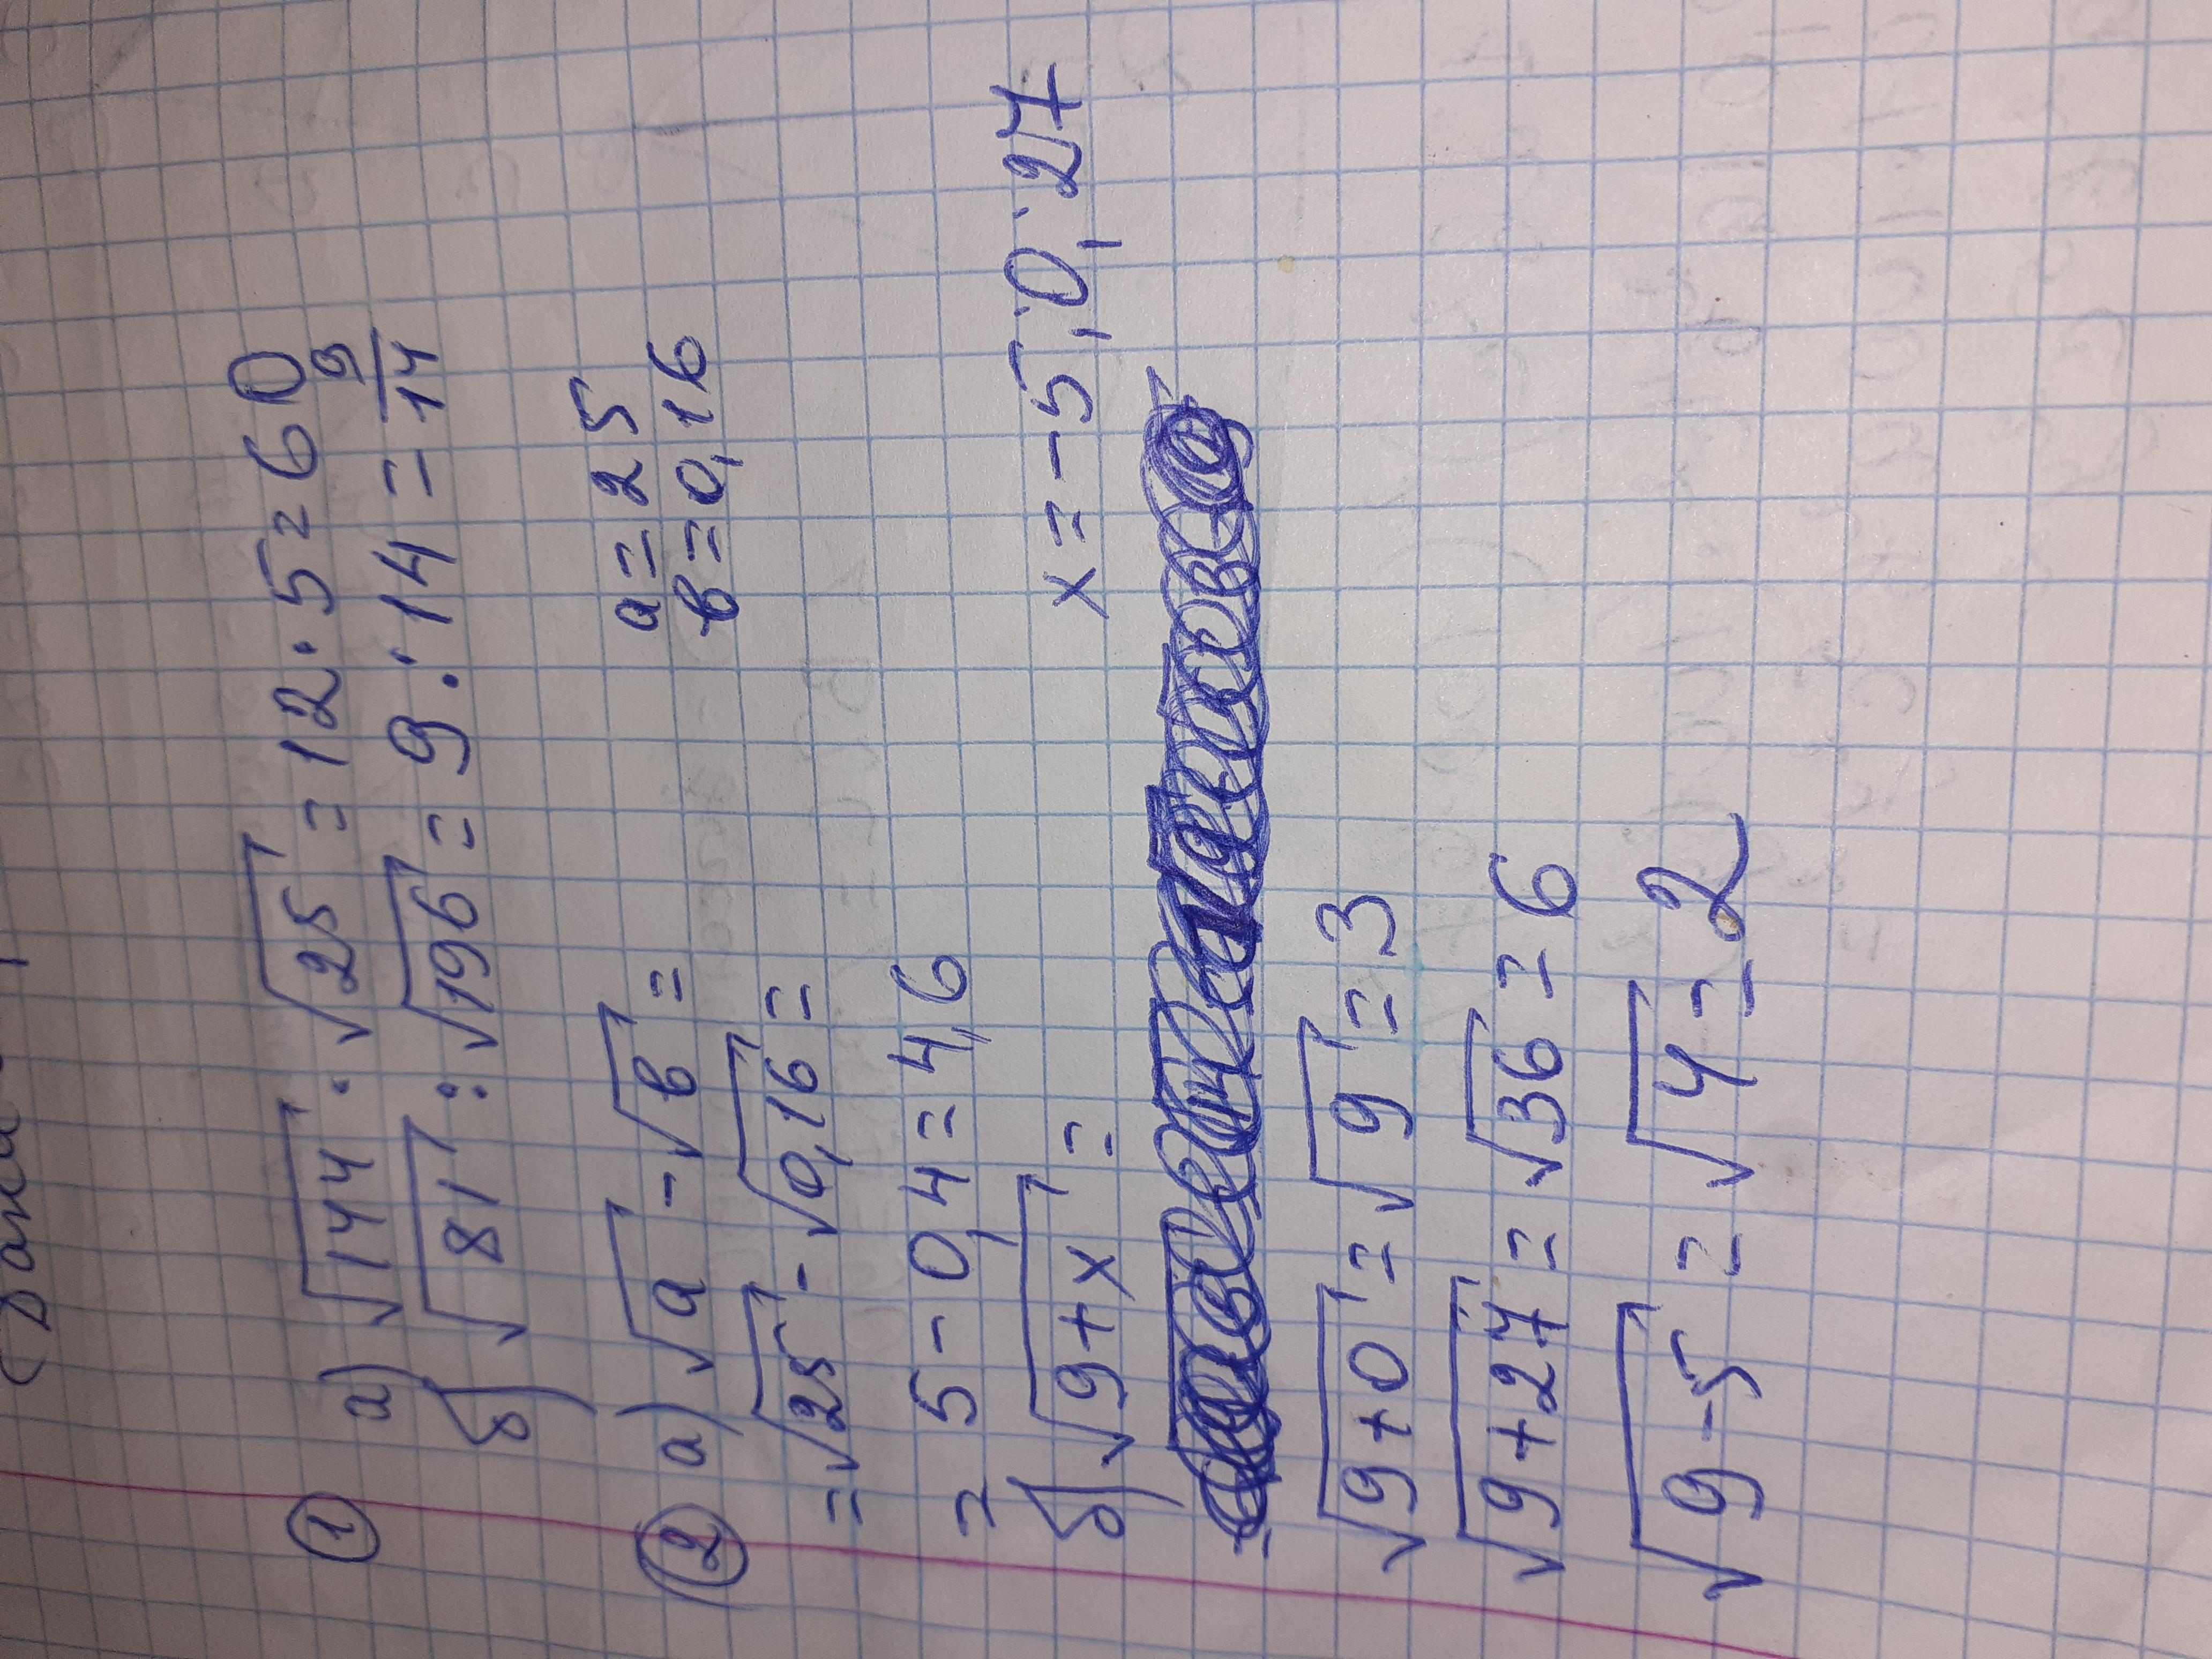 ① а) √144 · √25 = 12 · 5 = 60
б) √81 : √196 = 9 : 14 = 9/14
② а) √a - √b = a = 25
b = 0,16
= √25 - √0,16 =
= 5 - 0,4 = 4,6
б) √9+x = x = -5; 0; 27
√9+0 = √9 = 3
√9+27 = √36 = 6
√9-5 = √4 = 2